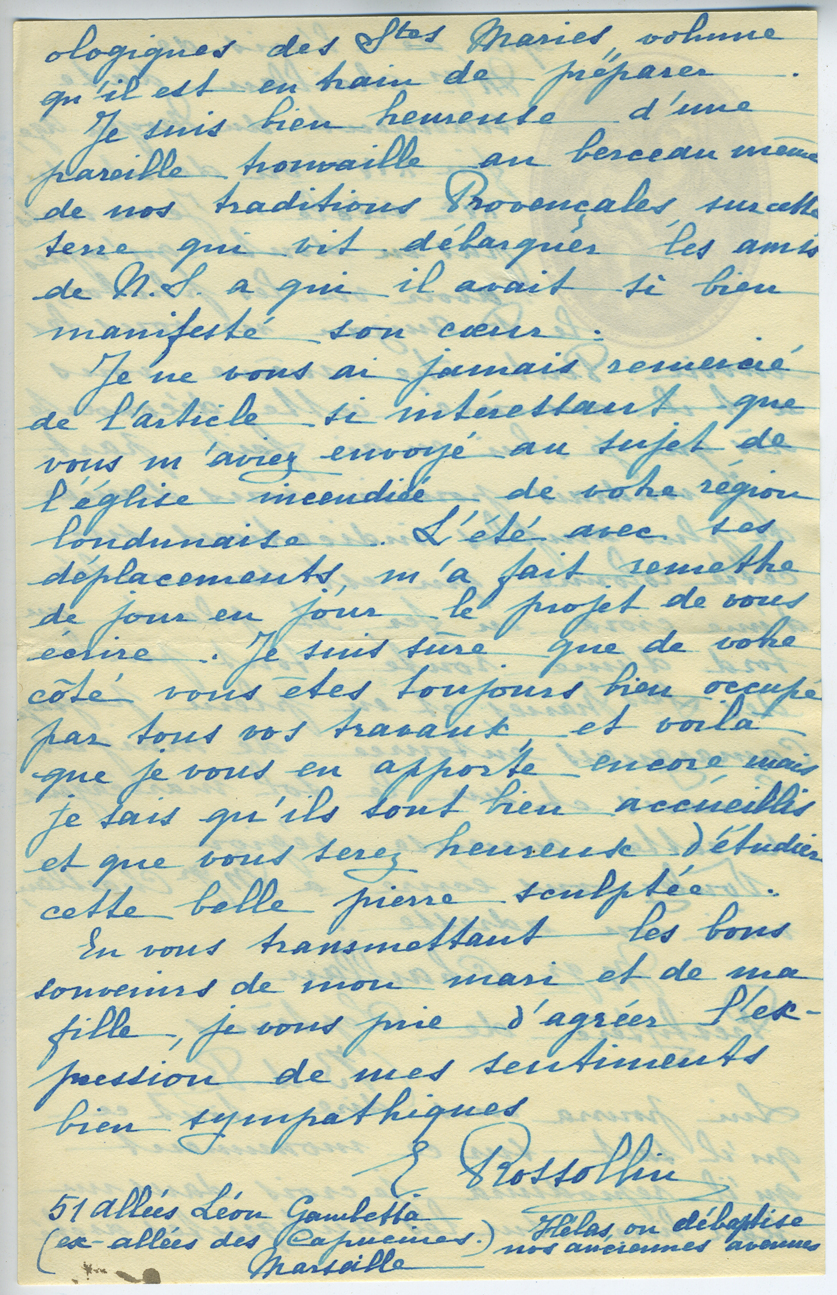 ologiques des Stes Maries", volume
qu'il est en train de préparer.
Je suis bien heureuse d'une
pareille trouvaille au berceau même
de nos traditions Provençales, sur cette
terre qui vit débarquer les amis
de N.S. a qui il avait si bien
manifesté son cœur.
Je ne vous ai jamais remercié
de l'article si intéressant que
vous m'aviez envoyé au sujet de
l'église incendiée de votre région
loudunaise. L'été avec ses
déplacements m'a fait remettre
de jour en jour le projet de vous
écrire. Je suis sûre que de votre
côté vous êtes toujours bien occupé
par tous vos travaux, et voilà
que je vous en apporte encore mais
je sais qu'ils sont bien accueillis
et que vous serez heureux d'étudier
cette belle pierre sculptée.
En vous transmettant les bons
souvenirs de mon mari et de ma
fille, je vous prie d'agréer l'ex-
pression de mes sentiments
bien sympathiques
E Rossollin
51 allées Léon Gambetta
(ex-allées des Capucines.)
Marseille
Hélas, on débaptise
nos anciennes avenues